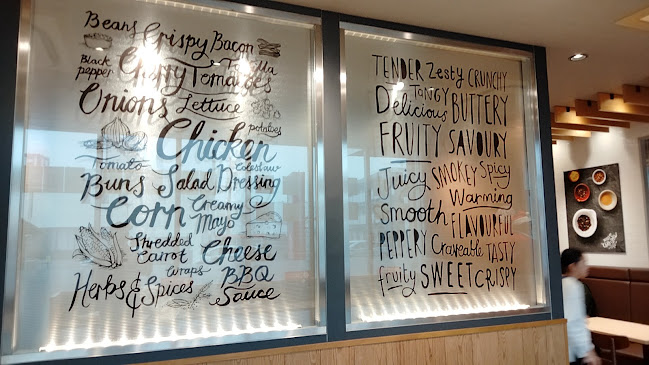 Beans Crispy Bacon
Black pepper
Tortilla
Tomatoes
Onions Lettuce
Chicken
potatoes
Coleslaw
Tomato
Buns Salad Dressing
Corn Creamy Mayo
Shredded Carrot
Cheese
Wraps
Herbs & Spices
BBQ Sauce
TENDER Zesty CRUNCHY
TANGY
Delicious BUTTERY
FRUITY SAVOURY
Juicy SMOKEY Spicy
Warming
Smooth FLAVOURFUL
PEPPERY Craveable TASTY
fruity SWEET CRISPY